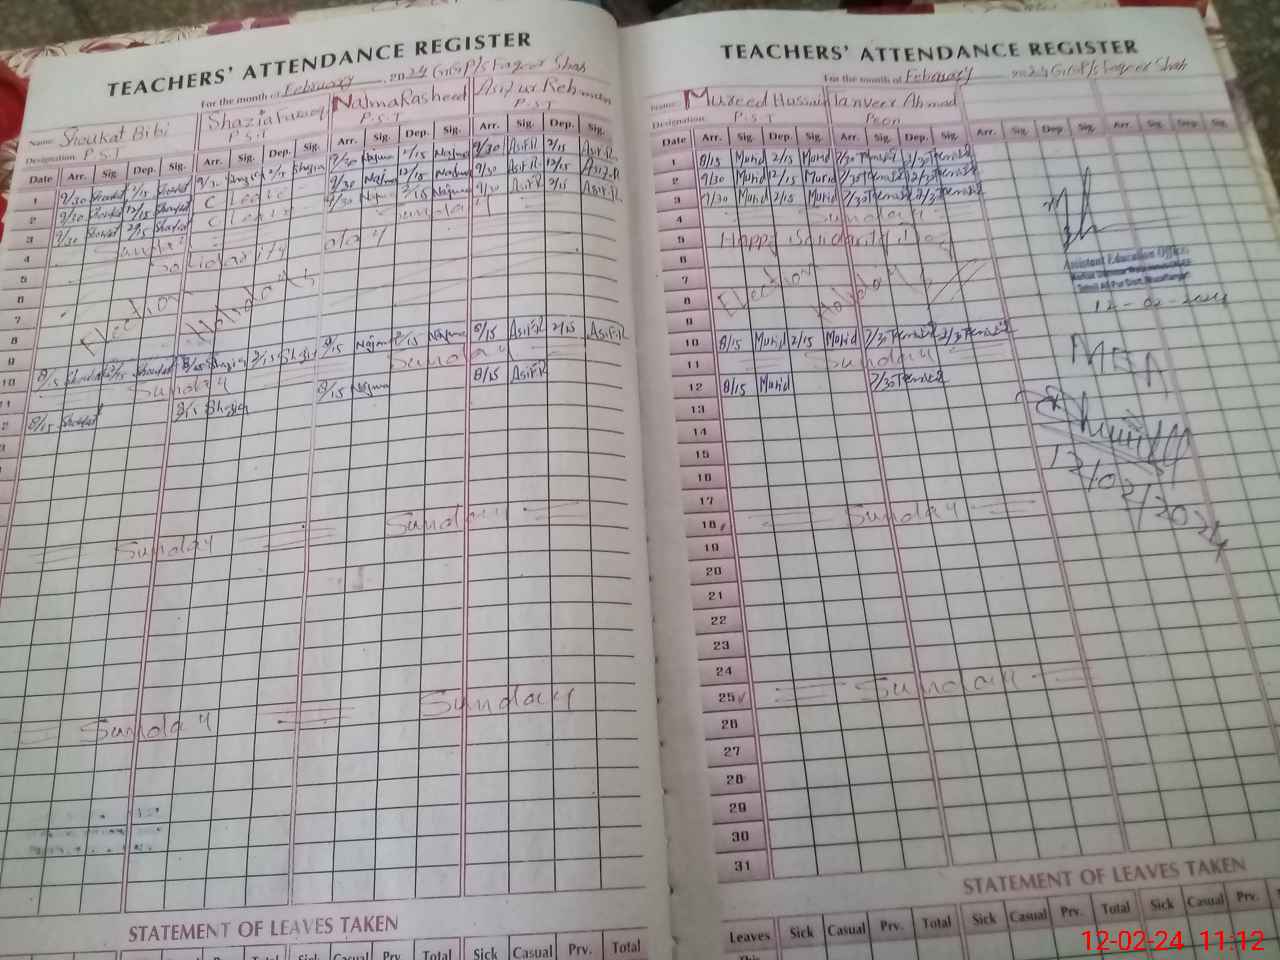 TEACHERS' ATTENDANCE REGISTER
For the month of February 2024 GGP/s Faqeer Shah
Name Shoukat Bibi Shazia Farooq Najma Rasheed Asif ur Rehman
Designation P.S.T P.S.T P.S.T P.S.T
Date Arr. Sig. Dep. Sig. Arr. Sig. Dep. Sig. Arr. Sig. Dep. Sig. Arr. Sig. Dep. Sig.
1 9/30 Shoukat 2/15 Shoukat 9/30 Shazia 2/15 Shazia 9/30 Najma 2/15 Najma 9/30 Asif.R 2/15 Asif.R
2 9/30 Shoukat 12/15 Shoukat C Leave 9/30 Najma 12/15 Najma 9/30 Asif.R 12/15 Asif.R
3 9/30 Shoukat 2/15 Shoukat C Leave 9/30 Najma 2/15 Najma 9/30 Asif.R 2/15 Asif.R
4 Sunday Sunday
5 Solidarity Day
6
7 Election Holidays
8
9
10 8/15 Shoukat 2/15 Shoukat 8/15 Shazia 2/15 Shazia 8/15 Najma 2/15 Najma 8/15 Asif.R 2/15 Asif.R
11 Sunday Sunday
8/15 Shoukat 8/15 Shazia 8/15 Najma 8/15 Asif.R
Sunday Sunday
Sunday Sunday
STATEMENT OF LEAVES TAKEN
Sick Casual Prv. Total
TEACHERS' ATTENDANCE REGISTER
For the month of February 2024 GGP/s Faqeer Shah
Name: Mureed Hussain Tanveer Ahmad
Designation P.S.T Peon
Date Arr. Sig. Dep. Sig. Arr. Sig. Dep. Sig. Arr. Sig. Dep. Sig. Arr. Sig. Dep. Sig.
1 8/15 Murid 2/15 Murid 7/30
2 9/30 Murid 12/15 Murid 7/30
3 9/30 Murid 2/15 Murid 7/30
4 Sunday
5 Happy Solidarity Day
6
7 Election Holidays
8
9
10 8/15 Murid 2/15 Murid 7/30
11 Sunday
12 8/15 Murid 7/30
13
14
15
16
17
18 Sunday
19
20
21
22
23
24
25 Sunday
26
27
28
29
30
31
Assistant Education Officer
12-02-2024
MEA
12/02/2024
STATEMENT OF LEAVES TAKEN
Leaves Sick Casual Prv. Total Sick Casual Prv. Total Sick Casual Prv.
This
12-02-24 11:12